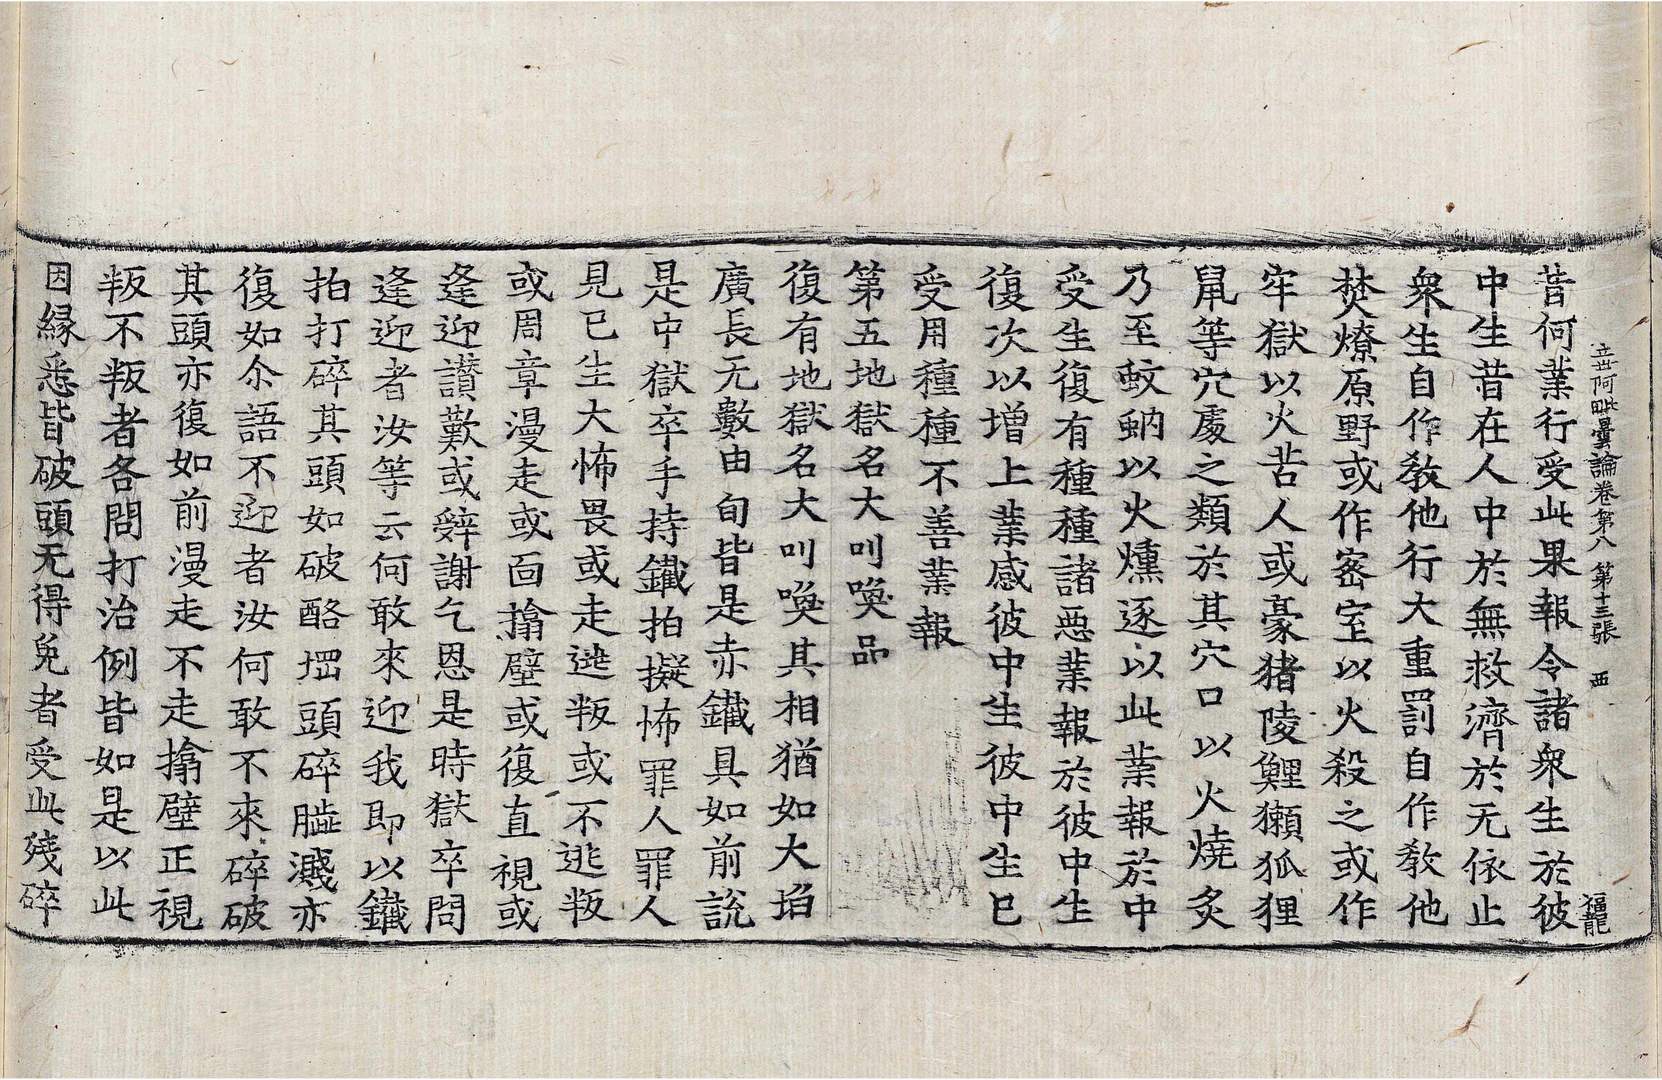 立世阿毗曇論卷第八　第十三張　西
福龍
昔何業行受此果報令諸衆生於彼
中生昔在人中於無救濟於无依止
衆生自作教他行大重罰自作教他
焚燎原野或作密室以火殺之或作
牢獄以火苦人或豪猪陵鯉獺狐狸
鼠等穴處之類於其穴口以火燒炙
乃至蚊蚋以火燻逐以此業報於中
受生復有種種諸惡業報於彼中生
復次以增上業感彼中生彼中生已
受用種種不善業報
第五地獄名大叫喚品
復有地獄名大叫喚其相猶如大埳
廣長无數由旬皆是赤鐵具如前說
是中獄卒手持鐵拍擬怖罪人罪人
見已生大怖畏或走逃叛或不逃叛
或周章漫走或面搚壁或復直視或
逢迎讃歎或辤謝乞恩是時獄卒問
逢迎者汝等云何敢來迎我即以鐵
拍打碎其頭如破酪堈頭碎𦡶濺亦
復如尒語不迎者汝何敢不來碎破
其頭亦復如前漫走不走搚壁正視
叛不叛者各問打治例皆如是以此
因縁悉皆破頭无得免者受此殘碎